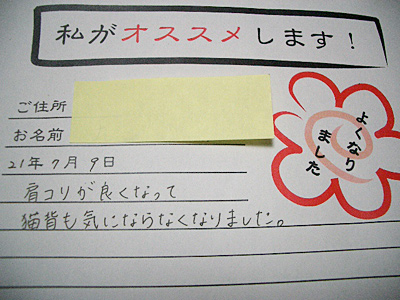 私がオススメします！
ご住所
お名前
21年7月9日
肩コリが良くなって
猫背も気にならなくなりました。
よくなり
ました